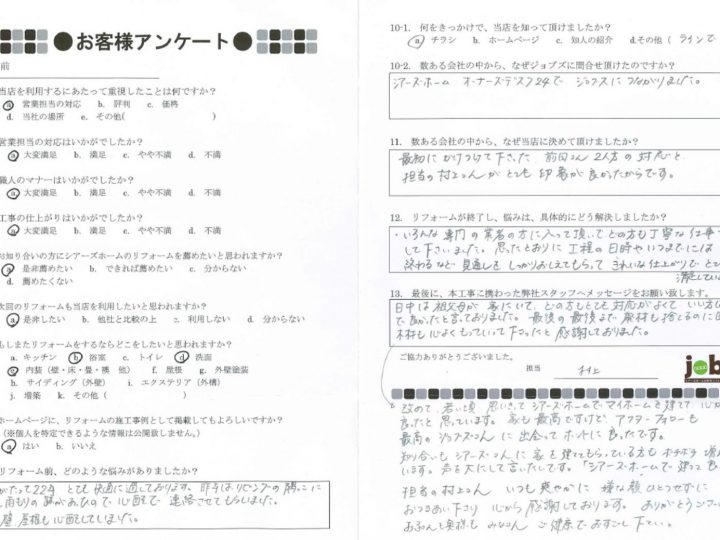 ●お客様アンケート●
前
当店を利用するにあたって重視したことは何ですか?
a. 営業担当の対応 b. 評判 c. 価格
d. 当社の場所 e. その他( )
営業担当の対応はいかがでしたか?
a 大変満足 b. 満足 c. やや不満 d. 不満
職人のマナーはいかがでしたか?
a 大変満足 b. 満足 c. やや不満 d. 不満
工事の仕上がりはいかがでしたか?
a 大変満足 b. 満足 c. やや不満 d. 不満
お知り合いの方にシアーズホームのリフォームを薦めたいと思われますか?
a 是非薦めたい b. できれば薦めたい c. 分からない
d. 薦めたくない
次回のリフォームも当店を利用したいと思われますか?
a 是非したい b. 他社と比較の上 c. 利用しない d. 分からない
もしまたリフォームをするならどこをしたいと思われますか?
a. キッチン b 浴室 c. トイレ d 洗面
e 内装(壁・床・畳・襖 他) f. 屋根 g. 外壁塗装
h. サイディング(外壁) i. エクステリア(外構)
j. 増築 k. その他( )
ホームページに、リフォームの施工事例として掲載してもよろしいですか?
(※個人を特定できるような情報は公開致しません。)
a はい b. いいえ
リフォーム前、どのような悩みがありましたか?
たって22年 とても快適に過しております。昨年はリビングの隣に
雨もりの 心配で 連絡させてもらいました。
壁 屋根も心配してました。
10-1. 何をきっかけで、当店を知って頂けましたか?
a チラシ b. ホームページ c. 知人の紹介 d.その他( ラインで
10-2. 数ある会社の中から、なぜジョブズに問合せ頂けたのですか?
シアーズホーム オーナーズデスク24で ジョブスに つながりました。
11. 数ある会社の中から、なぜ当店に決めて頂けましたか?
最初に かけつけて 下さった 前田さん 2人方の 対応と
担当の村上さんが とても 印象が良かったからです。
12. リフォームが終了し、悩みは、具体的にどう解決しましたか?
・いろんな 専門の 業者の方に入って頂いて どの方も丁寧な仕事
して下さいました。思ったとおりに 工程の 日時や いつまでには
終わるなど 見通しを しっかりおしえてもらって きれいな仕上がりで とても
満足してい
13. 最後に、本工事に携わった弊社スタッフへメッセージをお願い致します。
日中は 祖父母が 家にいて、どの方もとても 対応がよくて いい方
で良かったと言っておりました。最後の最後まで 廃材も捨てるのに
木材も心よくもっていって下さったと 感謝しておりました。
ご協力ありがとうございました。
担当 村上
job
改めて、若い頃 思いきって シアーズホームで マイホームを建てて 心か
良かったと 思っています。家も最高ですけど アフターフォローも
最高の ジョブスさんに 出会って ホントに 良かったです。
知り合いも シアーズさんに 家を 建ててもらっている方も
います。声を大にして言いたいです。「シアーズホームで 建てて 良
担当の村上さん いつも 爽やかに 嫌な顔 ひとつせずに
おつきあい下さり 心から 感謝しております。ありがとうございま
みなさん ご健康で おすごし下さい。